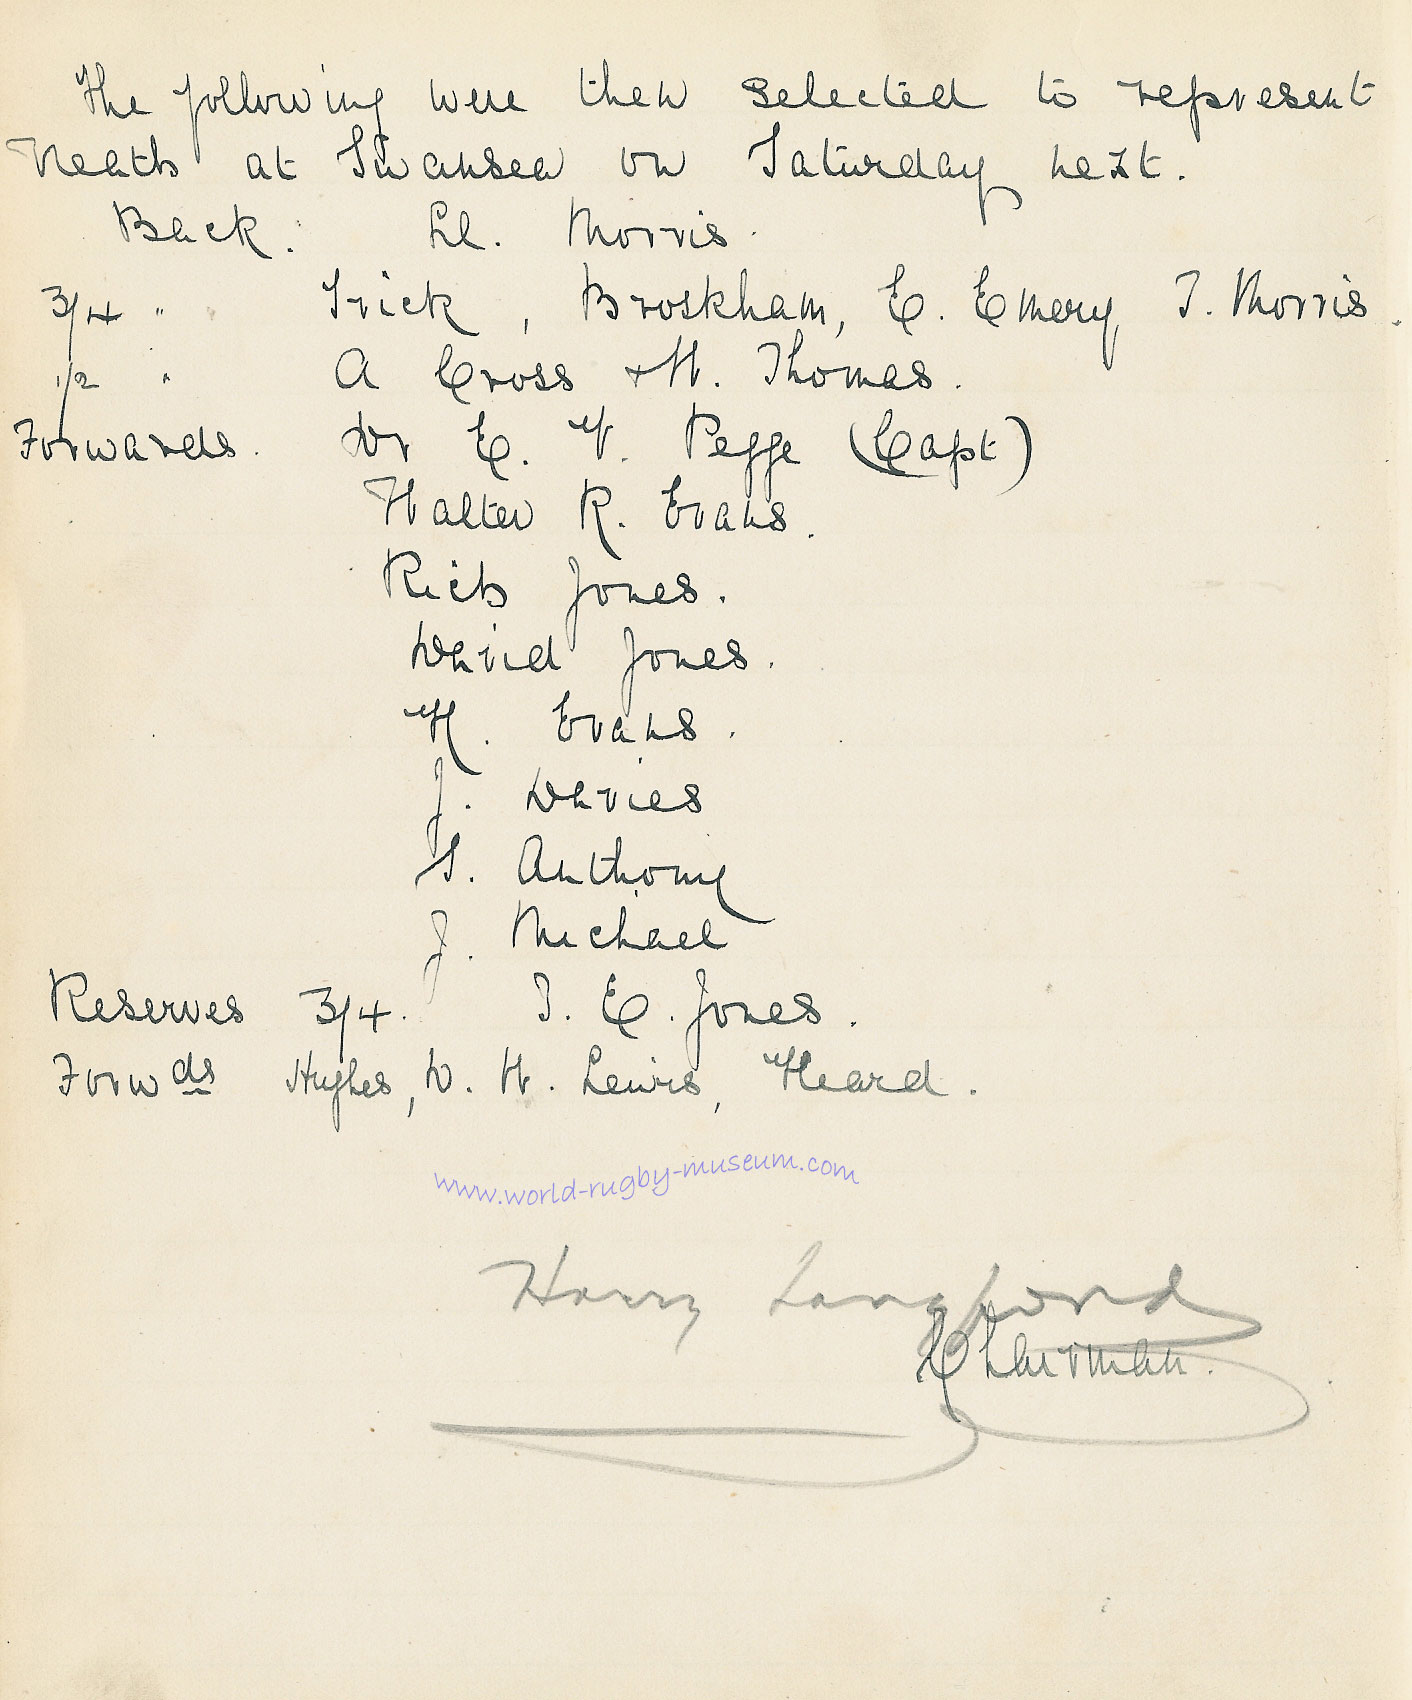 The following were then selected to represent
Neath at Swansea on Saturday next.
Back. Ll. Morris.
3/4 " Trick, Broskham, E. Emery, T. Morris.
1/2 " A Cross + W. Thomas.
Forwards. Dr E. V. Pegge (Capt)
Walter R. Evans.
Rich Jones.
David Jones.
H. Evans.
J. Davies
S. Anthony
J. Michael
Reserves 3/4. T. E. Jones.
Forwds Hughes, D. H. Lewis, Heard.
www.world-rugby-museum.com
Harry Langford
Chairman.